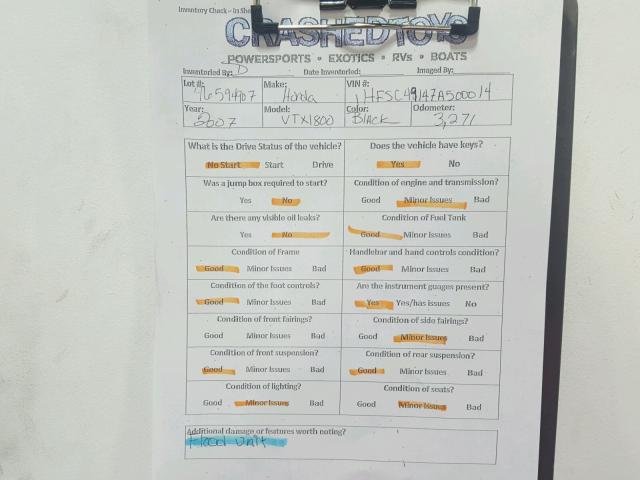 Inventory Check – In She
CRASHEDTOYS
POWERSPORTS • EXOTICS • RVs • BOATS
Inventoried By: D Date Inventoried: Imaged By:
Lot #: Make: VIN #:
Honda
Year: Model: Color: Odometer:
2007 VTX1800 Black 3,271
What is the Drive Status of the vehicle? Does the vehicle have keys?
No Start Start Drive Yes No
Was a jump box required to start? Condition of engine and transmission?
Yes No Good Minor Issues Bad
Are there any visible oil leaks? Condition of Fuel Tank
Yes No Good Minor Issues Bad
Condition of Frame Handlebar and hand controls condition?
Good Minor Issues Bad Good Minor Issues Bad
Condition of the foot controls? Are the instrument guages present?
Good Minor Issues Bad Yes Yes/has issues No
Condition of front fairings? Condition of side fairings?
Good Minor Issues Bad Good Minor Issues Bad
Condition of front suspension? Condition of rear suspension?
Good Minor Issues Bad Good Minor Issues Bad
Condition of lighting? Condition of seats?
Good Minor Issues Bad Good Minor Issues Bad
Additional damage or features worth noting?
Flood unit